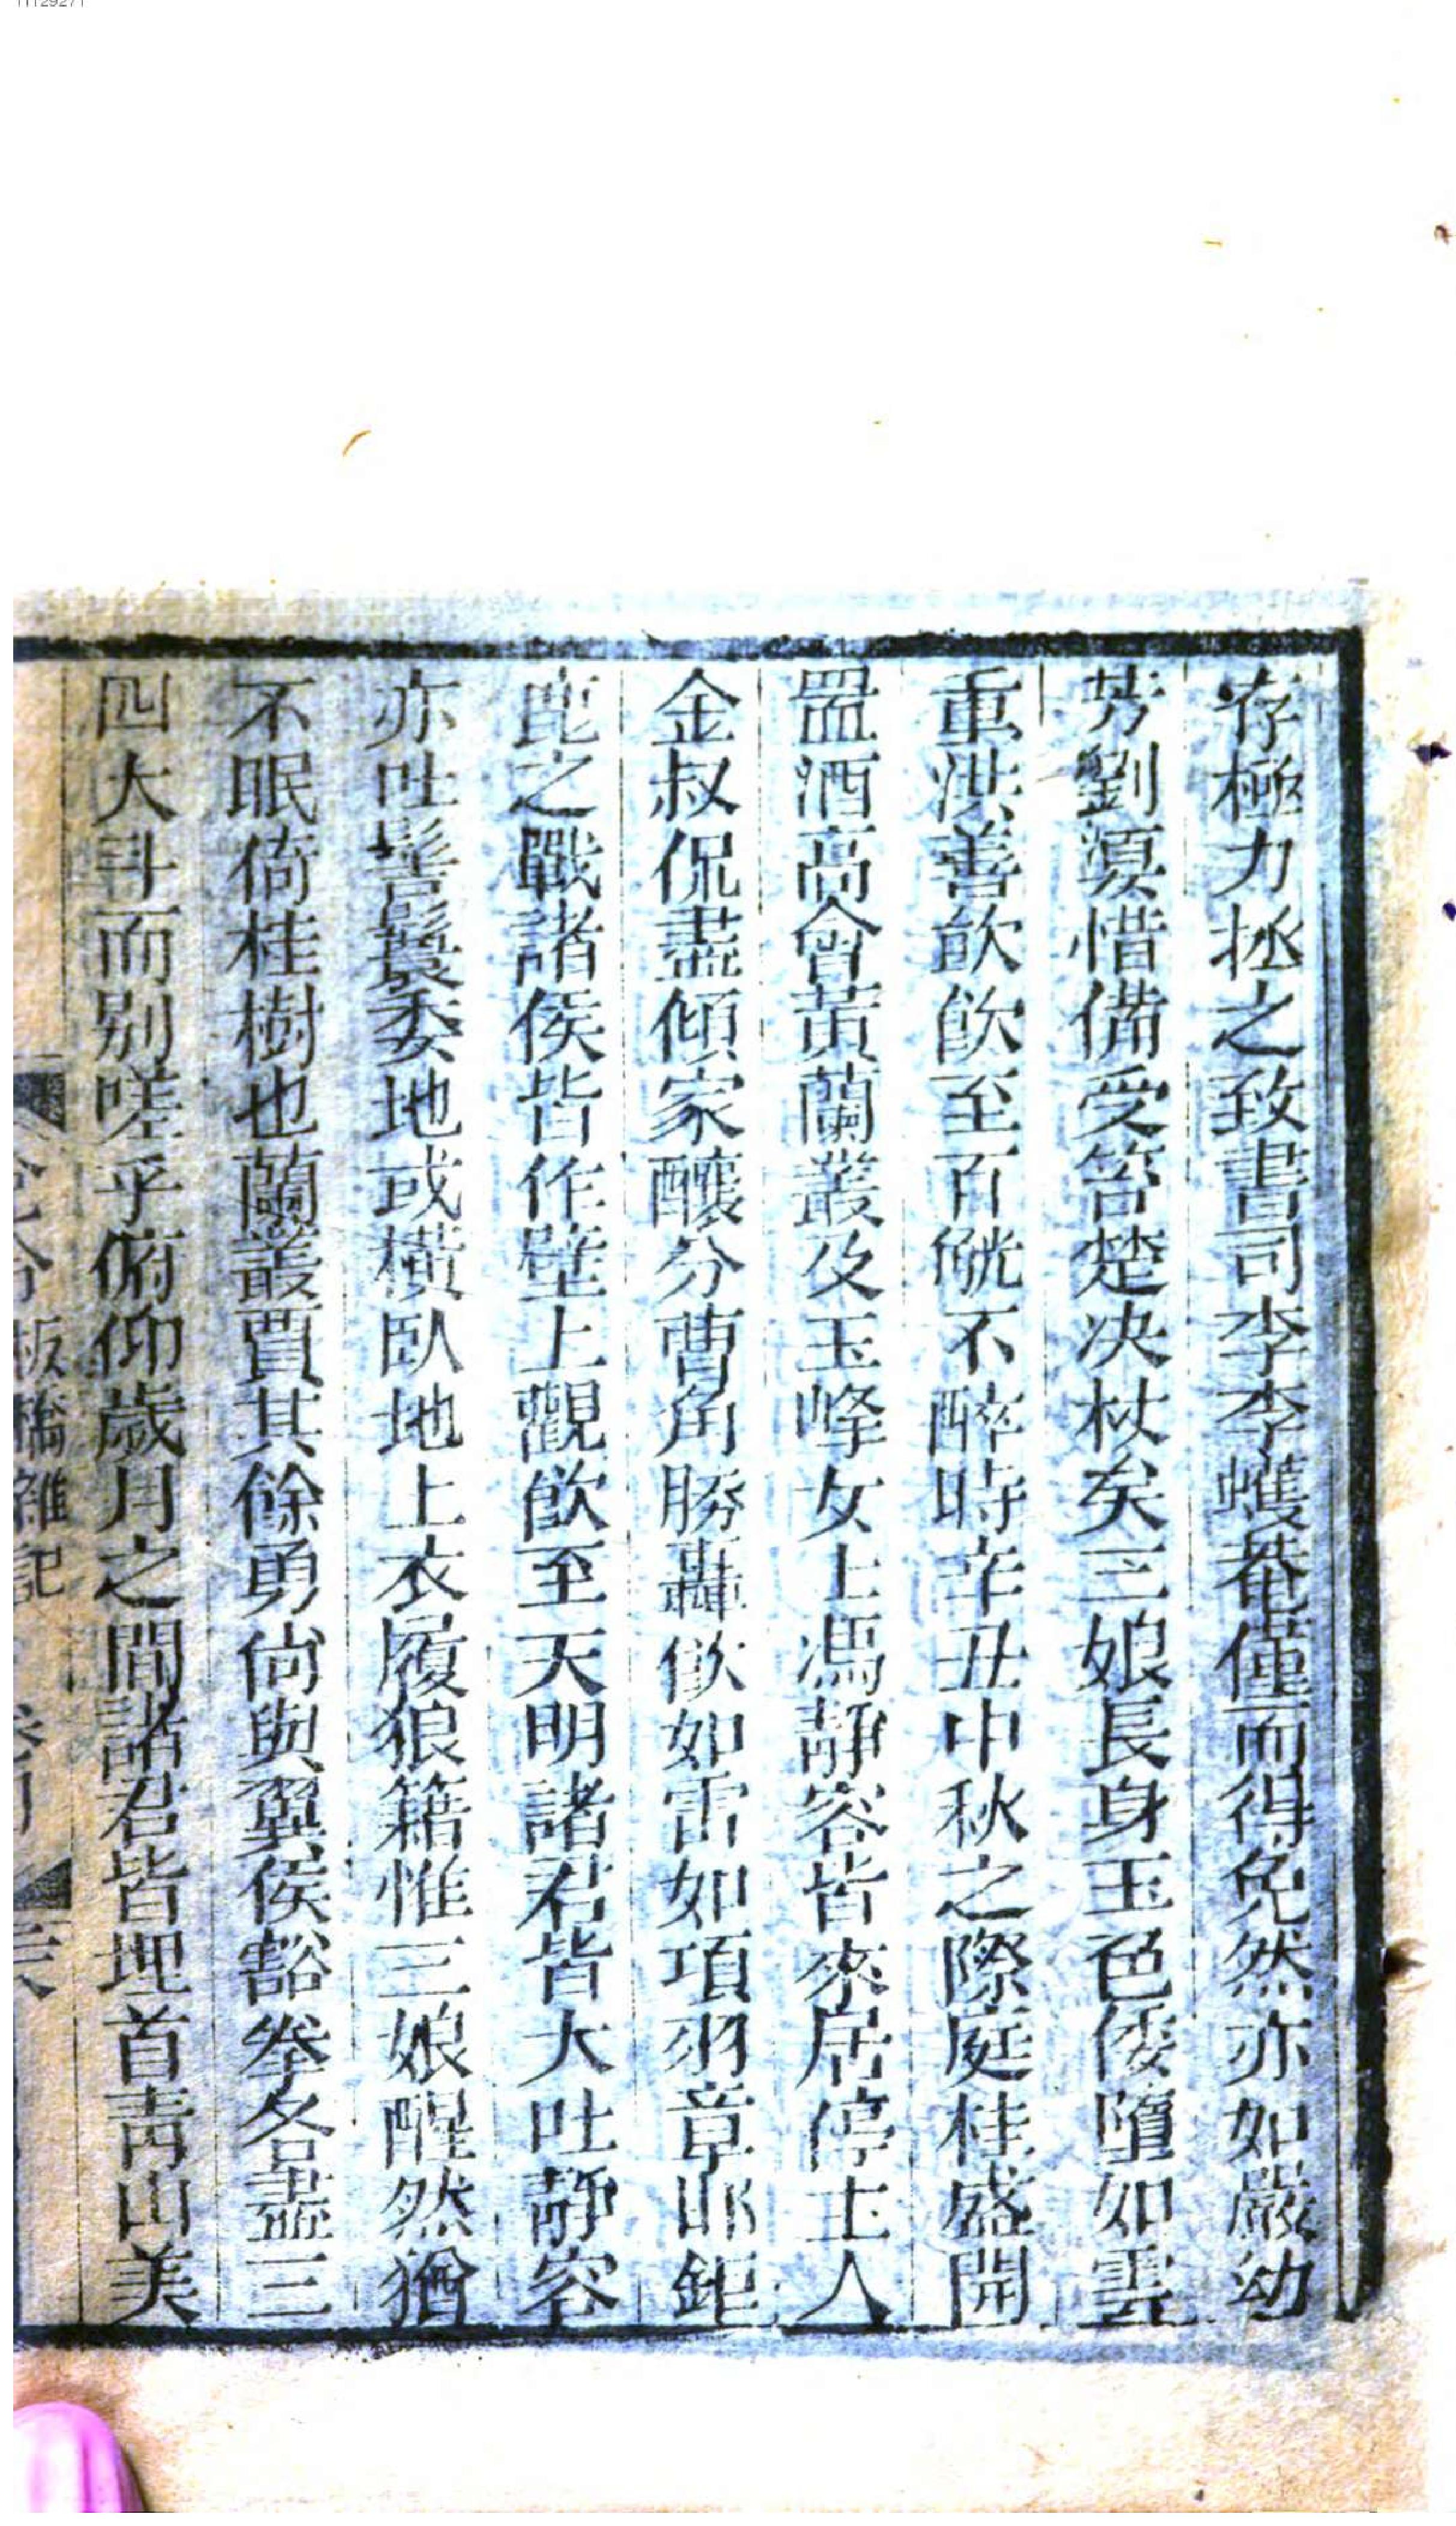 存極力拯之致書司李李蠖菴僅而得免然亦如嚴幼
芳劉婆惜備受笞楚决杖矣三娘長身玉色倭墮如雲
重洪善飲飲至百觥不醉時辛丑中秋之際庭桂盛開
置酒高會黃蘭叢及玉峰女士馮靜容皆來居停主人
金叔侃盡傾家釀分曹角勝轟飲如雷如項羽章邯鉅
鹿之戰諸侯皆作壁上觀飲至天明諸君皆大吐靜容
亦吐髻鬟委地或橫臥地上衣履狼籍惟三娘醒然猶
不眠倚桂樹也蘭叢賈其餘勇尙與翼侯豁拳各盡三
四大斗而別嗟乎俯仰歲月之間諸君皆埋首青山美
板橋雜記